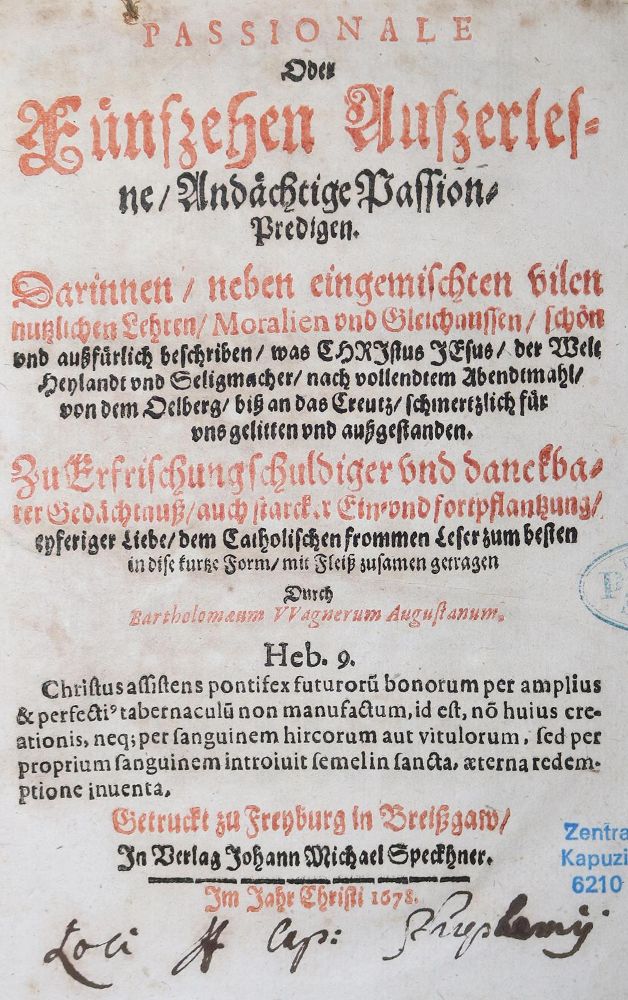 PASSIONALE
Oder
Fünfzehen Außerles-
ne/ Andächtige Passion-
Predigen.
Darinnen/ neben eingemischten vilen
nutzlichen Lehren/ Moralien vnd Gleichnussen/ schön
vnd außfürlich beschriben/ was CHRIstus JEsus/ der Welt
Heylandt vnd Seligmacher/ nach vollendtem Abendtmahl/
von dem Oelberg/ biß an das Creutz/ schmertzlich für
vns gelitten vnd außgestanden.
Zu Erfrischung schuldiger vnd danckba-
rer Gedächtnuß/ auch starcker Ein- vnd fortpflantzung/
eyferiger Liebe/ dem Catholischen frommen Leser zum besten
in dise kurtze Form/ mit Fleiß zusamen getragen
Durch
Bartholomæum VVagnerum Augustanum.
Heb. 9.
Christus assistens pontifex futurorū bonorum per amplius
& perfectiꝰ tabernaculū non manufactum, id est, nō huius cre-
ationis, neq; per sanguinem hircorum aut vitulorum, sed per
proprium sanguinem introiuit semel in sancta, æterna redem-
ptione inuenta.
Getruckt zu Freyburg in Breißgaw/
In Verlag Johann Michael Speckhner.
Im Jahr Christi 1678.
Zentra
Kapuzi
6210
Loci Cap: